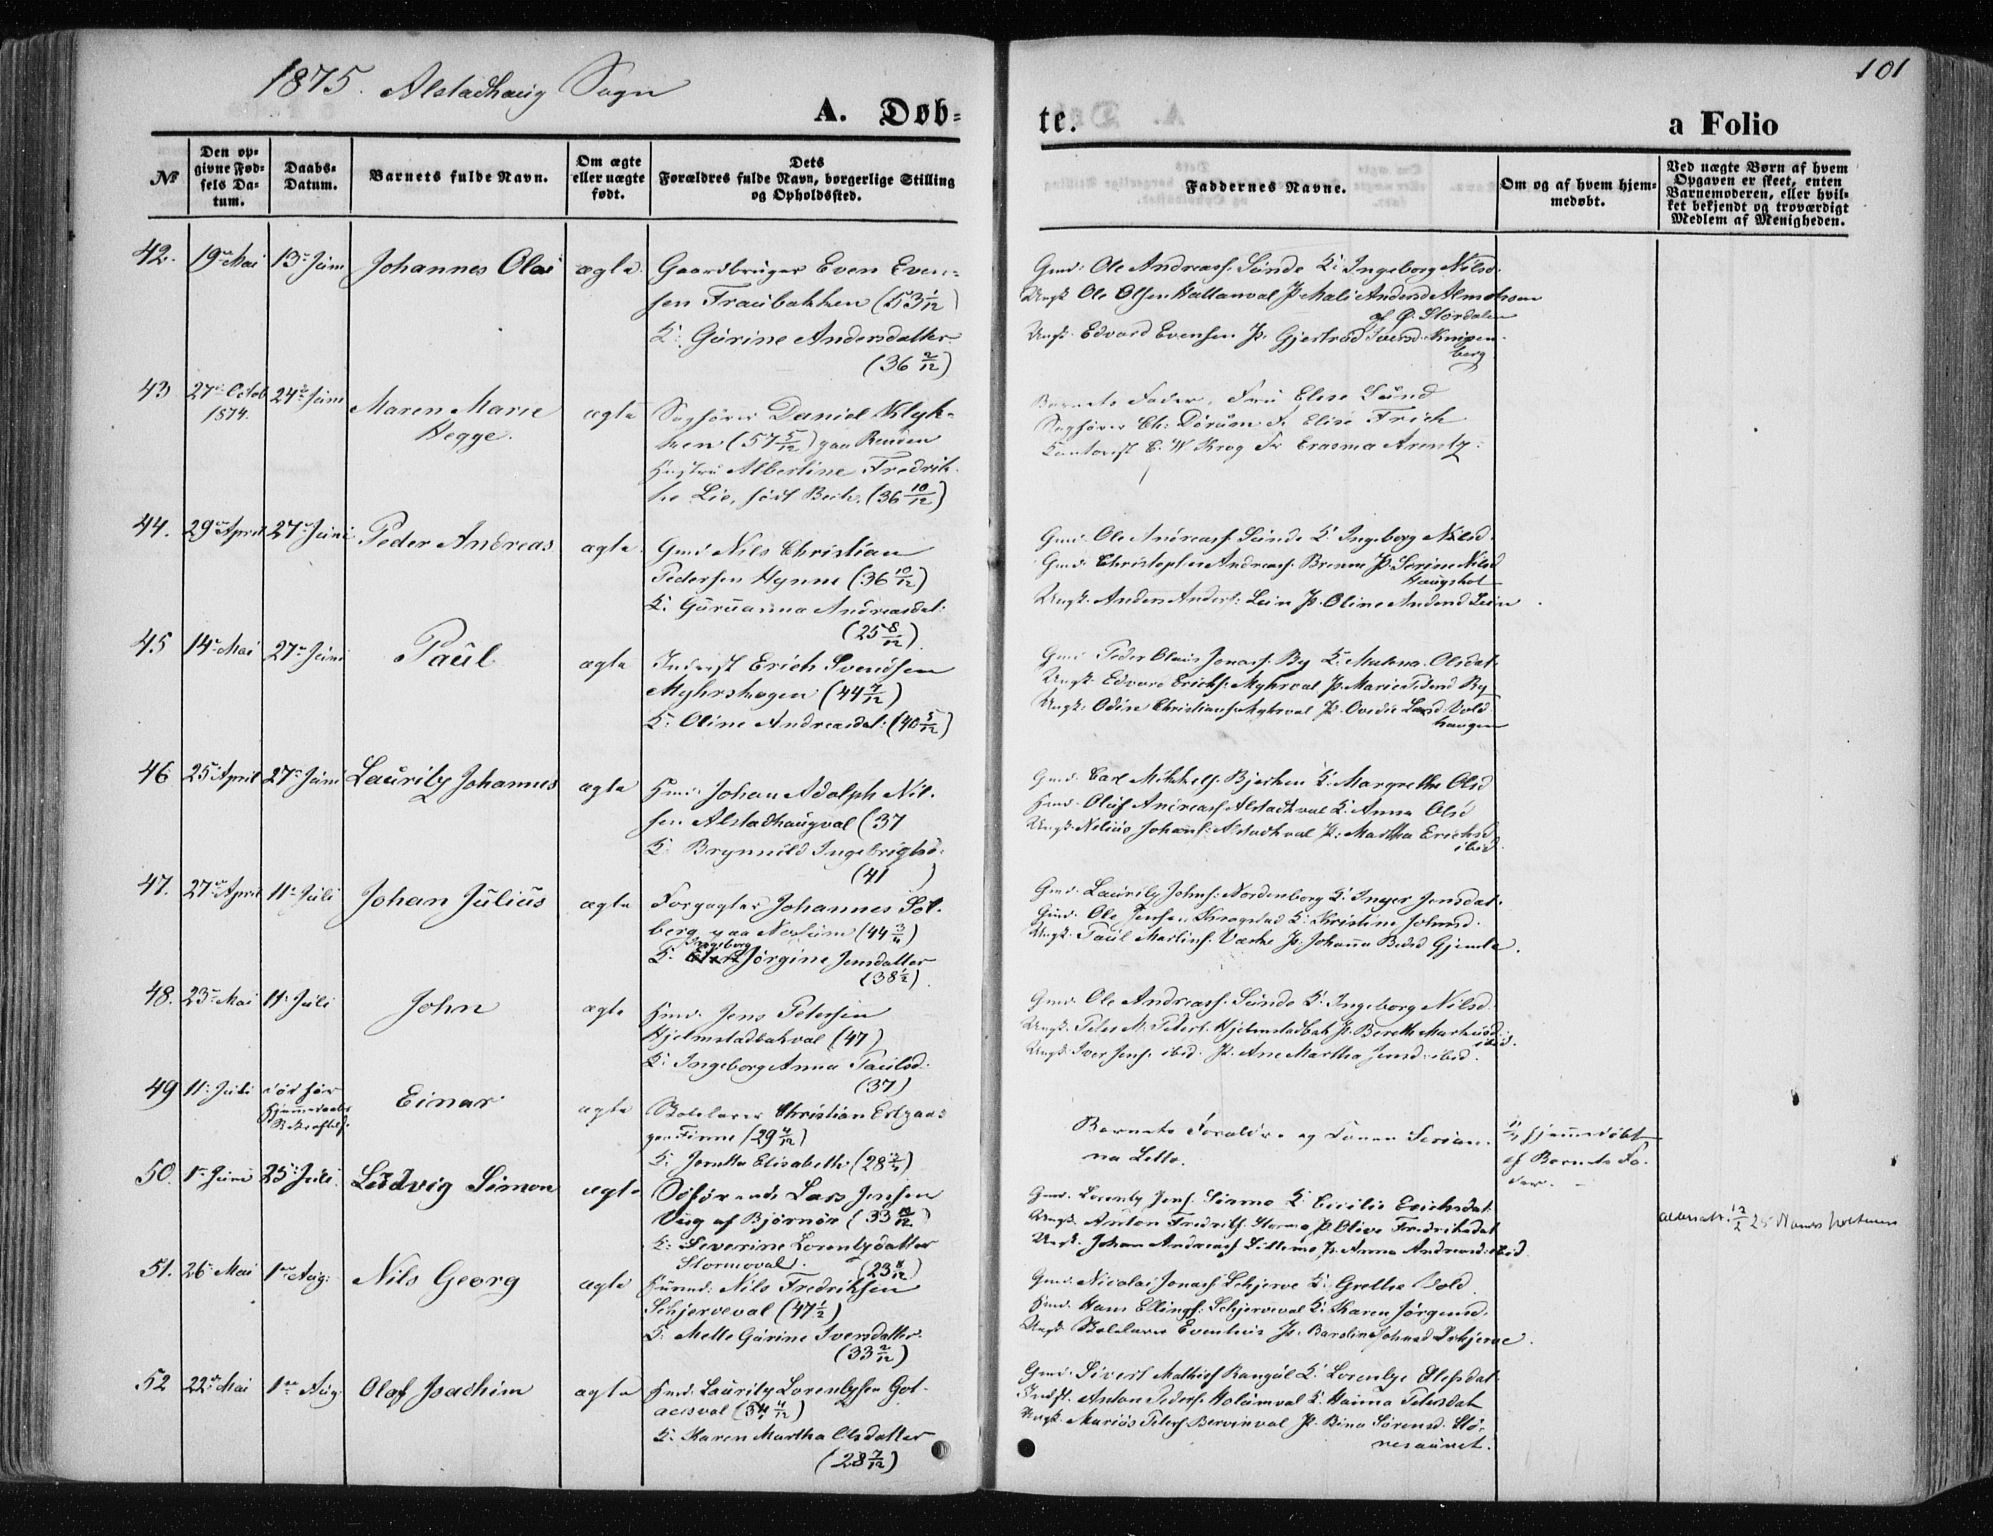 1875. Alstadhaug Sogn
101
A. Døb=
te.
a Folio
No
Den op=
givne Fød=
sels Da=
tum.
Daabs=
Datum.
Barnets fulde Navn.
Om ægte
eller uægte
født.
Dets
Forældres fulde Navn, borgerlige Stilling
og Opholdssted.
Faddernes Navne.
Om og af hvem hjem=
medøbt.
Ved uægte Børn af hvem
Opgaven er skeet, enten
Barnemoderen, eller hvil=
ket bekjendt og troværdigt
Medlem af Menigheden.
42. 19de Mai 13de Juni Johannes Olai ægte Gaardbruger Even Even=
sen Traubakken (53 1/12)
K: Gurine Andersdatter
(36 2/12)
Gmd: Ole Andreass. Sunde K: Ingeborg Nilsd.
Ungk. Ole Olsen Hallanval P. Mali Andersd Almohaen
af Ø. Stordalen
Ungk. Edvard Evensen P. Gjertrud Iversd. Knipen
berg
43 27de Octob 24de Juni Maren Marie ægte Sagfører Daniel Klyk=
1874.
Hegge.
ken (57 5/12) paa Reuden
Hustru Albertine Fredrik=
ke Lie, født Bech. (36 10/12)
Barnets Fader, Fru Elise Lund
Sagfører Ch: Dørum F. Elise Frich
Kontorist C. W. Krog Fr Erasma Arentz.
44. 29de April 27de Juni Peder Andreas ægte Gmd Nils Christian
Pedersen Hynne (36 10/12)
K: Guruanna Andreasdat:
(25 8/12)
Gmd. Ole Andreass. Sunde K: Ingeborg Nilsd.
Gmd. Christopher Andreass. Brenne P. Serine Nilsd
Haugshol
Ungk. Anders Anders: Lein P. Oline Andersd Lein
45 14de Mai 27de Juni Paul ægte Inderst Erich Svendsen
Myhrshagen (44 7/12)
K: Oline Andreasdat: (40 5/12)
Gmd Peder Olaus Jonass. By K. Malena Olsdat.
Ungk. Edvard Erichs. Myhrval P. Marie Pedersd By
Ungk: Odin Christians. Myhrval P. Ovedie Larsd. Vold
haugen
46 25de April 27de Juni Lauritz Johannes ægte Hmd. Johan Adolph Nil=
sen Alstadhaugval (37
K. Brynnild Ingebrigtsd.
(41 )
Gmd. Carl Mikkels. Bjerken K. Margrethe Olsd
Hmd. Oluf Andreass Alstadhval K. Anna Olsd
Ungk. Nilius Johans. Alstadhval P. Martha Erichsd
ibid.
47. 27de April 11te Juli Johan Julius ægte Forpagter Johannes Sol=
berg paa Nossum (44 3/4)
Ingeborg
K: Jørgine Jensdatter
(38 1/2)
Gmd. Lauritz Johns: Nordenborg K: Inger Jensdat.
Gmd: Ole Jensen Krogstad K: Kristine Johnsd.
Ungk. Paul Martins. Værke P. Johanna Pedsd Gjemle.
48. 23de Mai 11te Juli John ægte Hmd. Jens Petersen
Hjelmstadbakval (47)
K: Ingeborg Anna Paulsd.
(37)
Gmd. Ole Andreass. Sunde K: Ingeborg Nilsd.
Ungk. Peter M. Peters. Hjelmstadbak P. Berethe Markusd.
ibid.
Ungk. Iver Jens. ibid. P. Ane Martha Jensd. ibid.
49 11te Juli død før
Hjemmedaabs
Bekræftelse
Einar ægte Boelslærer Christian Erlgaas
paa Finne (29 4/12)
K: Jonetta Elisabeth (28 3/4)
Barnets Forældre og Tanna Serian=
na Lello.
11/7 hjemmedøbt
af Barnets Fa=
der.
50. 1ste Juni 25de Juli Ludvig Simon ægte Søfarende Lars Jensen
Vug af Bjørnør (33 10/12)
K: Severine Lorentzdatter
Stormoval. (23 8/12)
Gmd. Lorentz Jens. Stormo K. Cecilie Erichsdat
Ungk. Anton Fredriks. Stormo P. Olive Fredriksdat
Ungk. Johan Andreass Lillemo P. Anna Andreasd. ibid.
51. 26de Mai 1ste Aug: Nils Georg ægte Huusmd. Nils Fredriksen
Schjerveval (47 1/2)
K. Mette Gurine Iversdatter.
(33 2/12)
Gmd. Nicolai Jonass Schjerve K. Grethe Vold.
Hmd. Hans Ellings: Schjerveval K. Karen Jørgensd.
Ungk. Boelslærer Evenhus P. Baroline Johnsd Schjerve.
52 22de Mai 1ste Aug. Olaf Joachim ægte Hmd. Lauritz Lorentzsen Got=
aasval (34 4/12)
K. Karen Martha Olsdatter
(28 7/12)
Gmd. Sivert Mathias Rangul K. Lorentze Olofsdat
Indst. Anton Peders. Holumval K. Hanna Petersdat
Ungk. Marius Peters Berrinval P. Bina Sørensd. Stø=
resaunet.